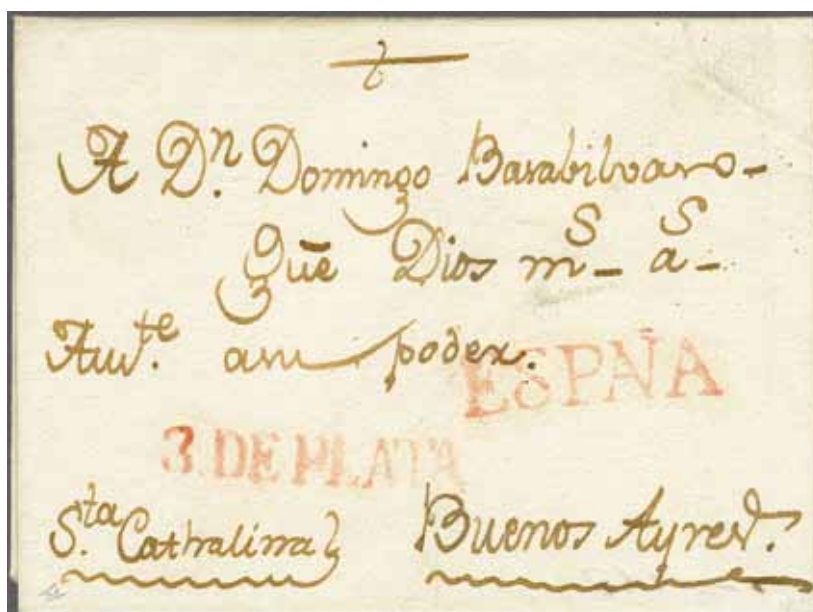 A Dn. Domingo Basabilbaso-
Gue Dios ms- as-
Auste. a su poder.
ESPÑA
3. DE PLATA
Sta. Cathalina Buenos Ayres.